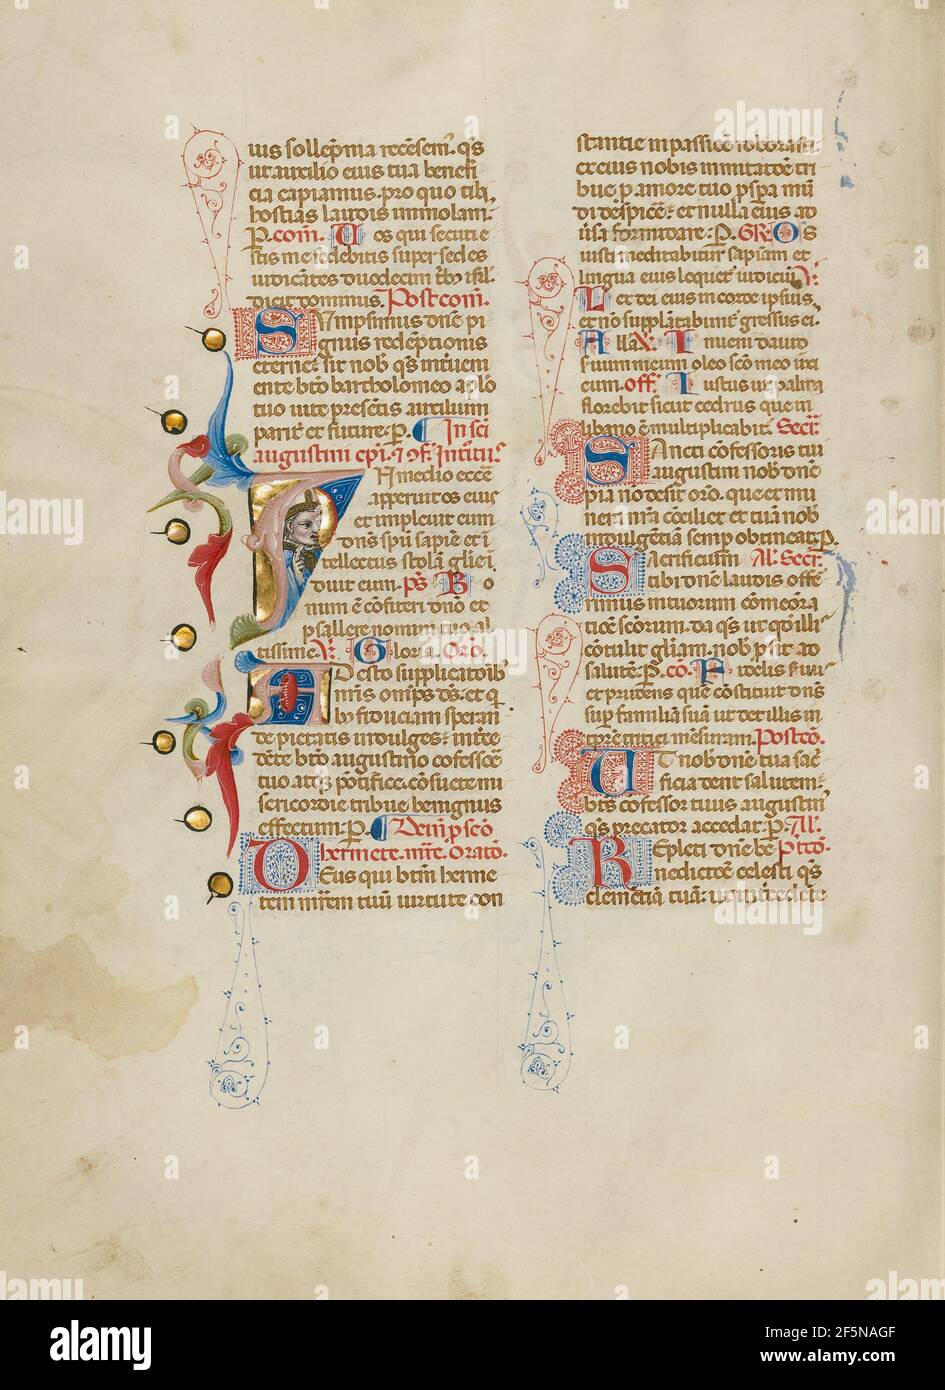 uus sollepnia recesem. qs
ut auxilio eius tua benefi
cia capiamus. pro quo tibi
hostias laudis immolam.
P. com. Uos qui secuti e
stis me sedebitis super sedes
iudicates duodecim trib isrl.
dicit dominus. Postcom.
Sumpsimus dne pi
gnus redeptionis
eterne: sit nob qs interueni
ente bto bartholomeo aplo
tuo uite presentis auxilium
parit et future. P. In sci
augustini epi. et cf. Introitus
In medio eccle
apperuit os eius
et impleuit eum
dns spu sapie et i
tellectus stola glie i
duit eum. ps Bo
num e cofiteri dno et
psallere nomini tuo al
tissime. Gloria. Oro.
Adesto supplicatoib
nris omps ds. et q
bus fiduciam speran
de pietatis indulges: interce
dete bto augustino cofesso
tuo atq pontifice. cosuete mi
sericordie tribue benignus
effectum. P.
hermete. mre. Orato.
Deus qui btm herme
tem mrem tuu uirtute con
stantie in passioe roborasti
ex eius nobis imitatoe tri
bue p amore tuo pspa mu
di despice: et nulla eius ad
uersa formidare: P. GR. Os
iusti meditabitur sapiam et
lingua eius loquet iudiciu.
Lex dei eius in corde ipsius
et no supplatabunt gressus ei.
Alla. Inueni dauid
seruum meum oleo sco meo uxi
eum. off. Iustus ut palma
florebit sicut cedrus que in
libano e multiplicabit. Secr.
Sancti cofessoris tui
augustini nob dne
pia no desit oro. que et mu
nera nra conciliet et tua nob
indulgetia semp obtineat. P.
Sacrificium Al. Secr.
tibi dne laudis offe
rimus in tuorum comeora
tioe scorum. da qs ut qd illis
cotulit gliam. nob psit ad
salute. P. co. Fidelis seru
et prudens que costituit dns
sup familia sua ut det illis in
tpre tritici mesuram. Postco.
Ut nob dne tua sac
ficia dent salutem:
btus cofessor tuus augustin
qs precator accedat. P. Al.
Repleti dne be Pstco.
nedictioe celesti qs
clementia tua: ut intercedete
alamy
Image ID: 2F5NAGF
www.alamy.com